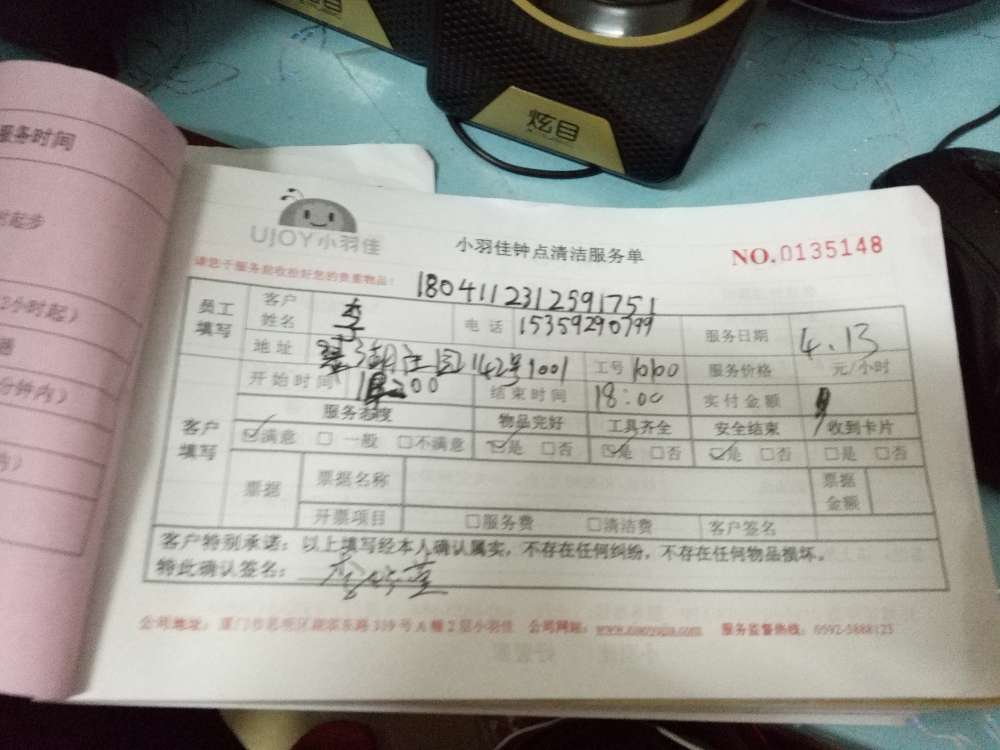 炫目
服务时间
时起步
2小时起）
分钟内）
UJOY小羽佳
小羽佳钟点清洁服务单
NO.0135148
请您于服务前收拾好您的贵重物品！
1804112312591751
员工填写
客户姓名
李
电话
15359290799
服务日期
4.13
地址
142号1001
工号
服务价格
元/小时
开始时间
结束时间
18:00
实付金额
客户填写
服务态度
物品完好
工具齐全
安全结束
收到卡片
☑满意 □一般 □不满意
☑是 □否
☑是 □否
☑是 □否
□是 □否
票据
票据名称
票据金额
开票项目
□服务费 □清洁费
客户签名
客户特别承诺：以上填写经本人确认属实，不存在任何纠纷，不存在任何物品损坏。
特此确认签名：
公司地址：厦门市思明区湖滨东路319号A幢2层小羽佳 公司网站：www.xiaoyujia.com 服务监督热线：0592-5888123